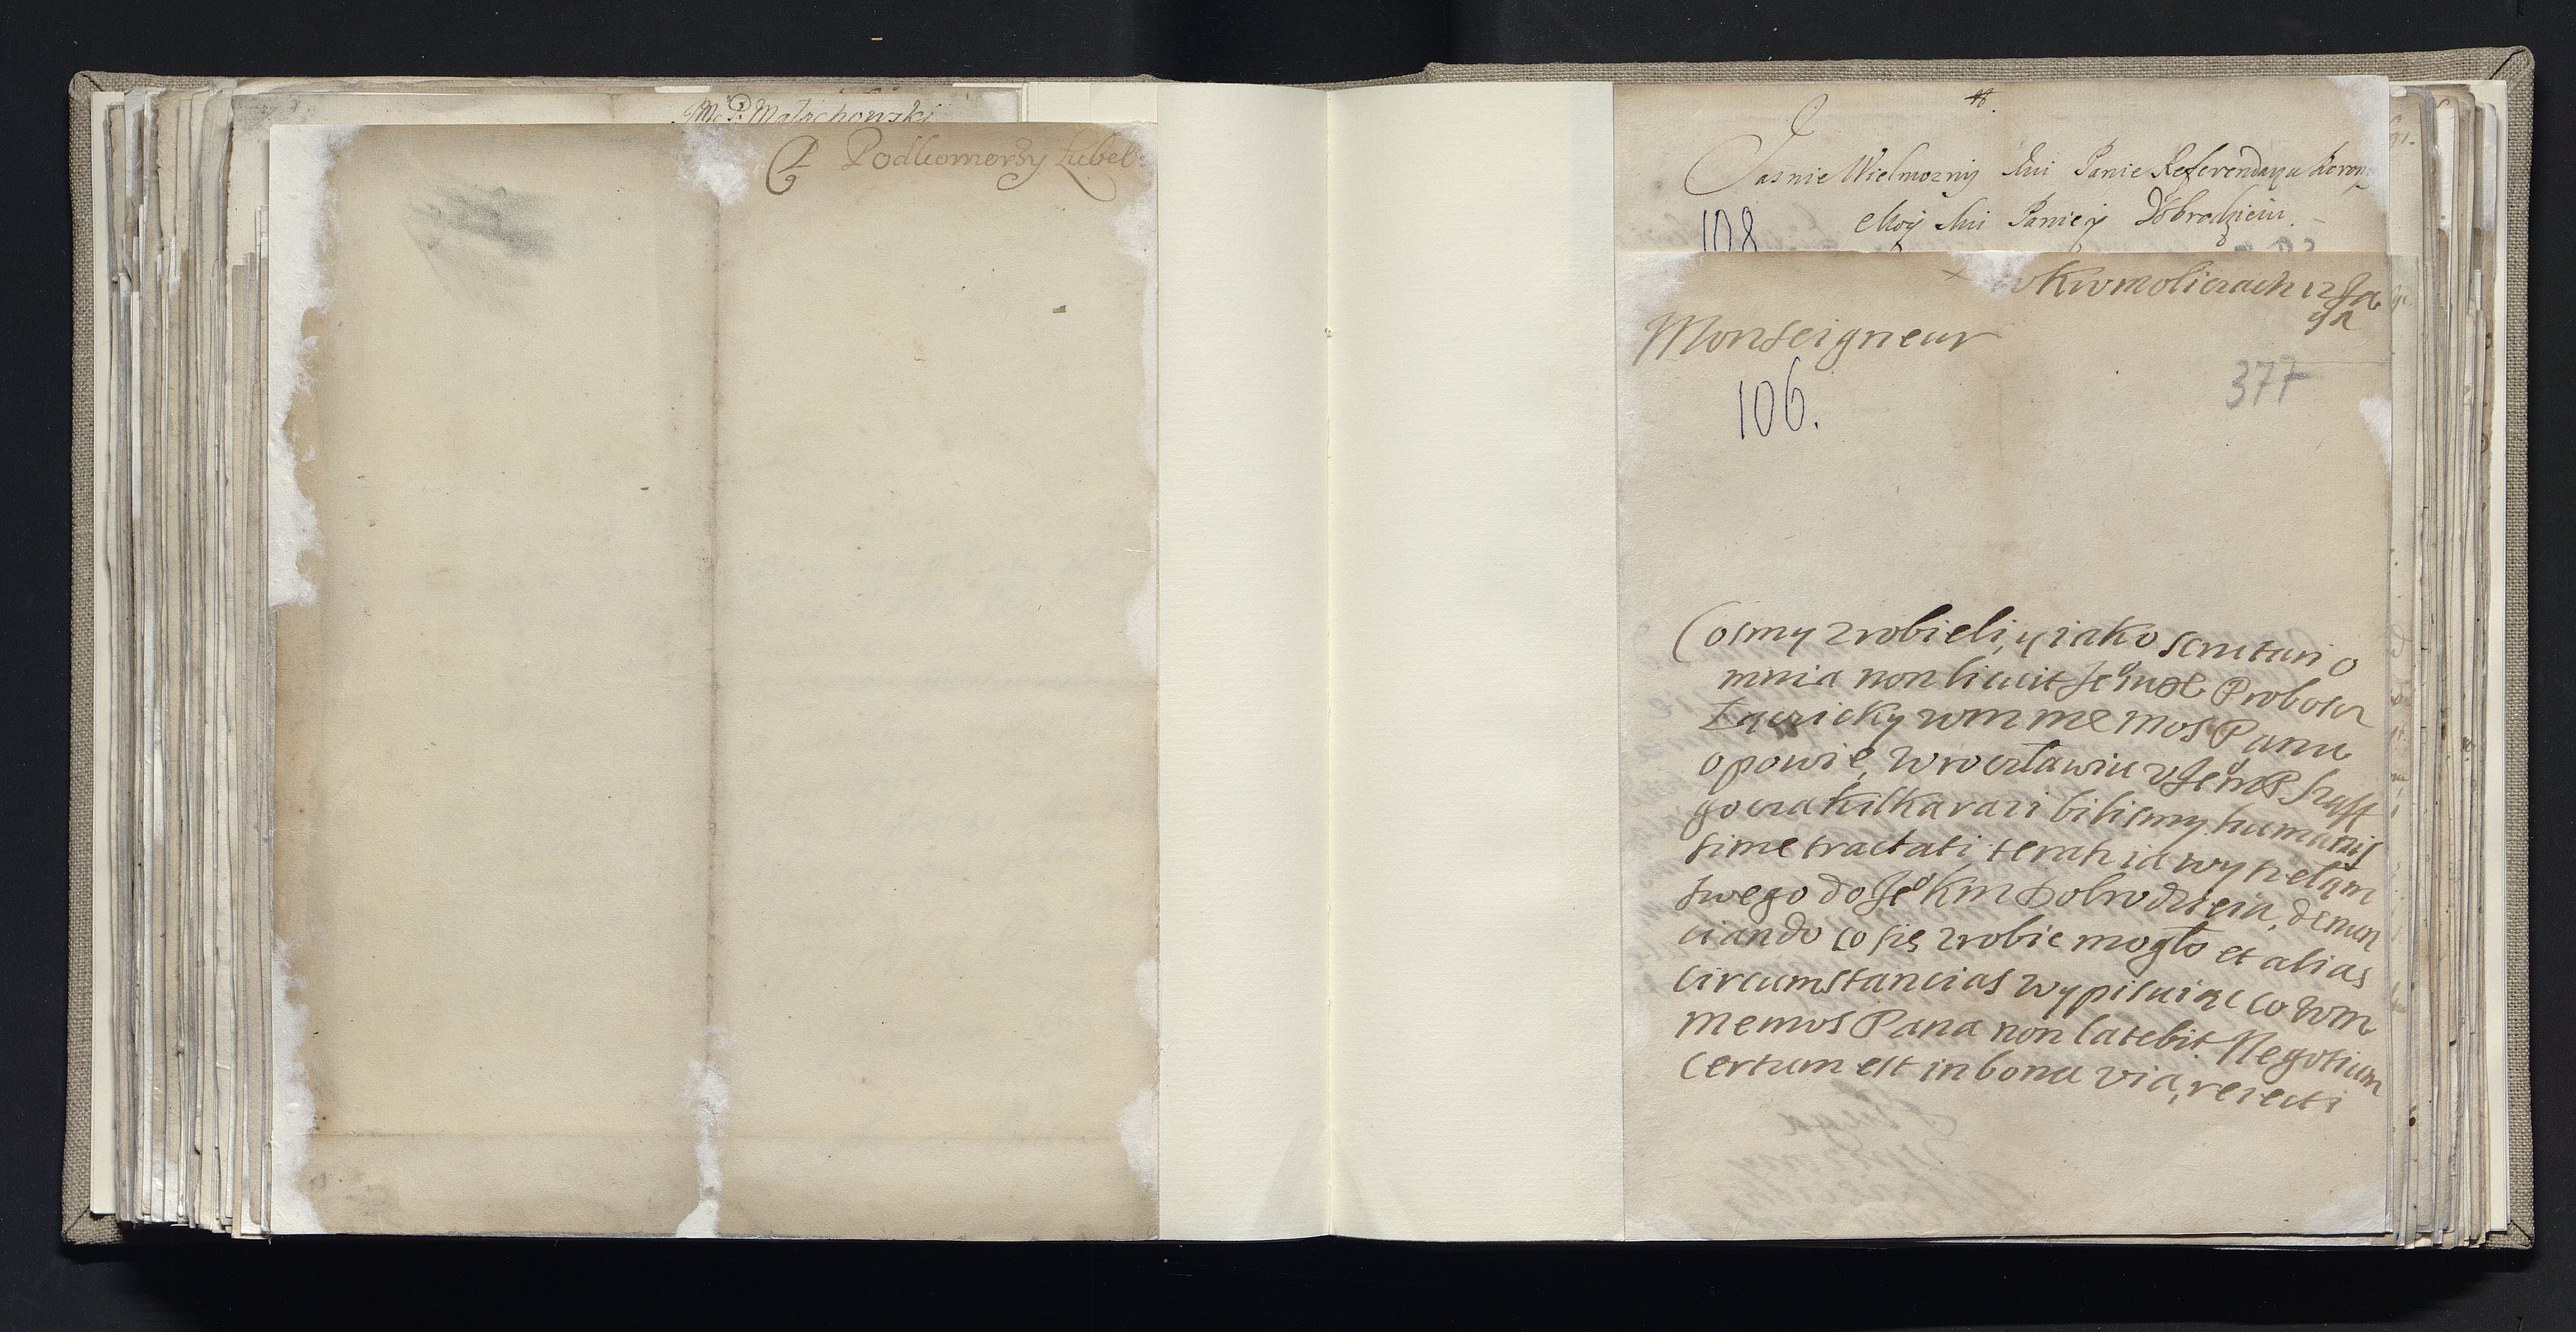 M. P. Małachowski
P. Podkomorzy Lubel:
Jasnie Wielmozny Mci Panie Referendarzu Koron
Moy Mci Panie y Dobrodzieiu.
108
Monseigneur
377
106.
Cosmy zrobieli, y iako scrutari o
mnia non licuit Je⁰ Probosz
Łączicky wm me Mos Panu
opowie, Wrocławiu v Je⁰
kilka razi bilismy humanis
sime tractati, teraz ia
swego do Je⁰ Km Dobrodzieia, denun
ciando co się zrobic mogło et alias
circumstancias wypisuiąc co wm
memos Pana non latebit. Negotium
certum est in bona via, reiecti